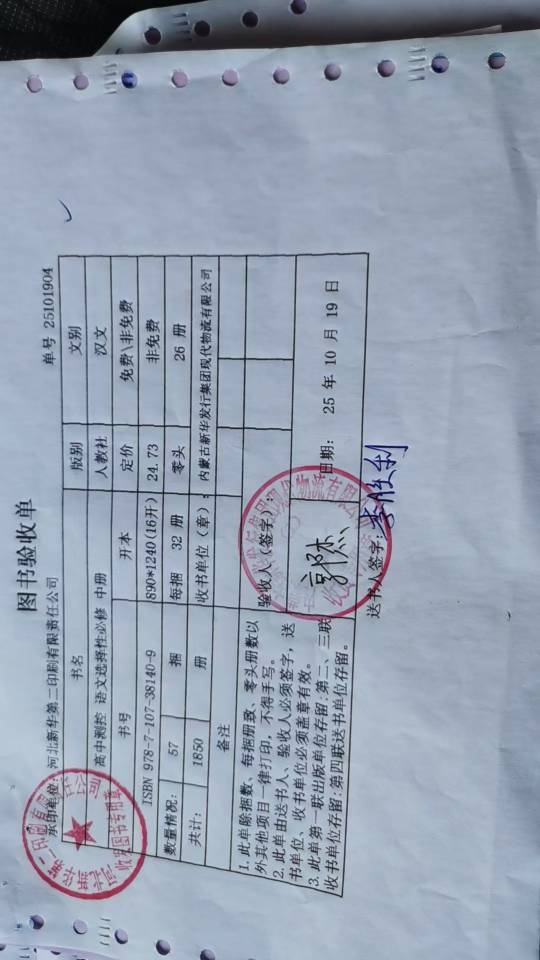 图书验收单
承印单位:河北新华第二印刷有限责任公司 单号 25101904
书名 版别 文别
高中测控 语文选择性必修 中册 人教社 汉文
书号 开本 定价 免费\非免费
ISBN 978-7-107-38140-9 890*1240(16开) 24.73 非免费
数量情况: 57 捆 每捆 32 册 零头 26 册
共计: 1850 册 收书单位(章): 内蒙古新华发行集团现代物流有限公司
备注
1. 此单除捆数、每捆册致、零头册数以
外其他项目一律打印,不得手写。
2. 此单由送书人、验收人必须签字,送
书单位、收书单位必须盖章有效。
3. 此单第一联出版单位存留:第二、三联
收书单位存留:第四联送书单位存留。
验收人(签字):
郭杰
日期: 25 年 10 月 19 日
送书人签字:李胜利
收发图书专用章